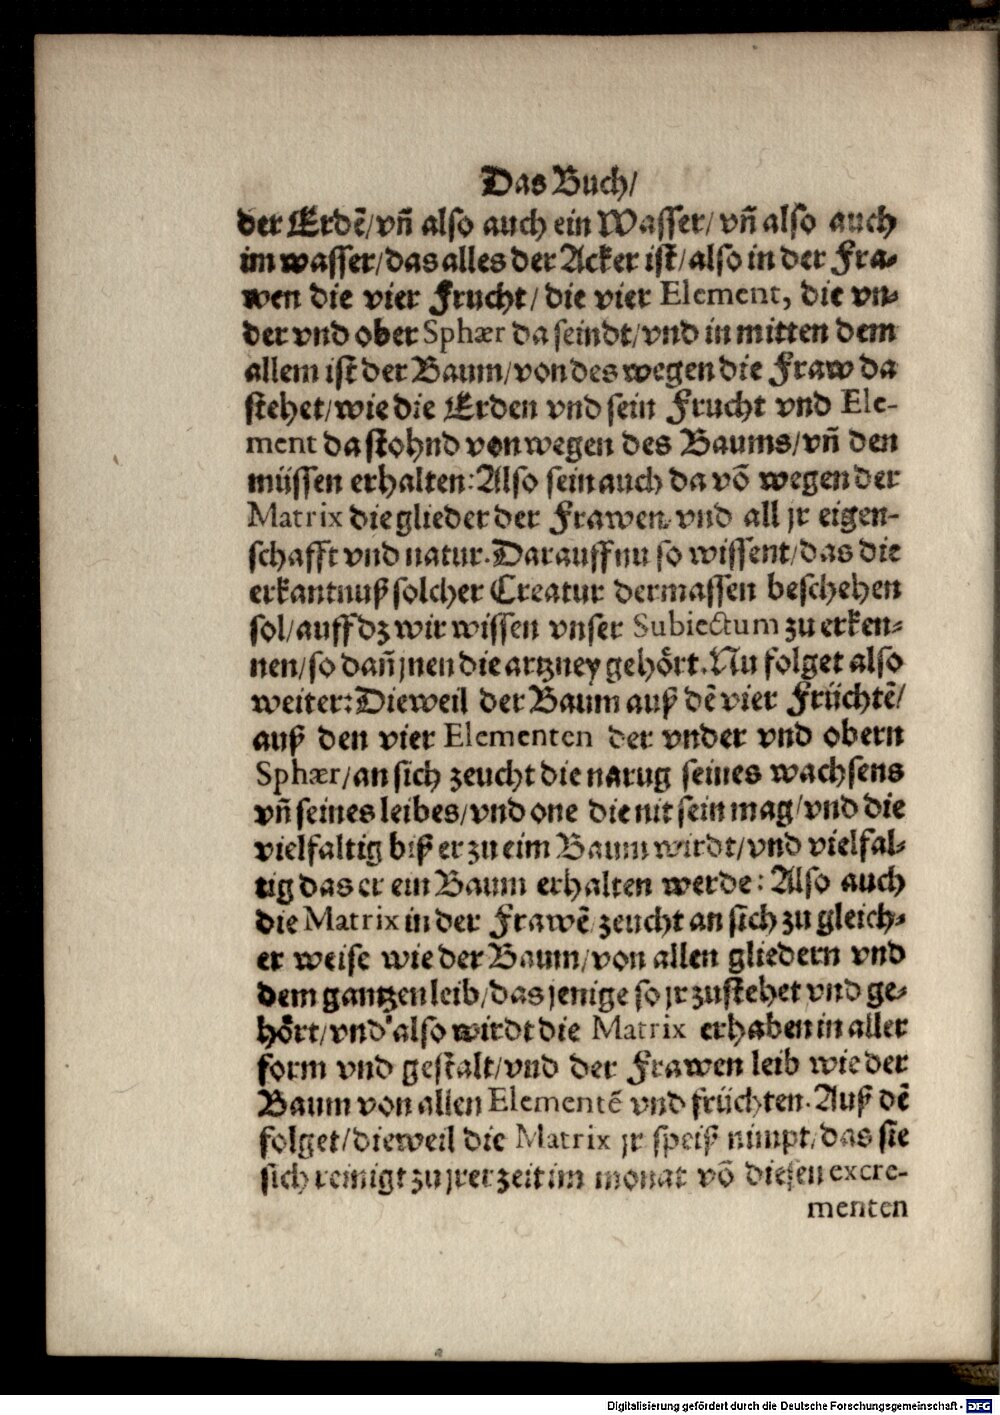 Das Buch/
der Erdẽ/vñ also auch ein Wasser/vñ also auch
im wasser/das alles der Acker ist/also in der Fra-
wen die vier Frucht/die vier Element, die vn-
der vnd ober Sphær da seindt/vnd in mitten dem
allem ist der Baum/von des wegen die Fraw da
stehet/wie die Erden vnd sein Frucht vnd Ele-
ment da stohnd von wegen des Baums/vñ den
müssen erhalten: Also sein auch da võ wegen der
Matrix die glieder der Frawen, vnd all jr eigen-
schafft vnd natur. Darauff nu so wissent/das die
erkantnuß solcher Creatur dermassen beschehen
sol/auff dz wir wissen vnser Subiectum zu erken-
nen/so dañ jnen die artzney gehört. Nu folget also
weiter: Dieweil der Baum auß dẽ vier Früchtẽ/
auß den vier Elementen der vnder vnd obern
Sphær/an sich zeucht die narug seines wachsens
vñ seines leibes/vnd one die nit sein mag/vnd die
vielfaltig biß er zu eim Baum wirdt/vnd vielfal-
tig das er ein Baum erhalten werde: Also auch
die Matrix in der Frawẽ/zeucht an sich zu gleich-
er weise wie der Baum/von allen gliedern vnd
dem gantzen leib/das jenige so jr zustehet vnd ge-
hört/vnd also wirdt die Matrix erhaben in aller
form vnd gestalt/vnd der Frawen leib wie der
Baum von allen Elementẽ vnd früchten. Auß dẽ
folget/dieweil die Matrix jr speiß nimpt/das sie
sich reinigt zu jrer zeit im monat võ diesen excre-
menten
Digitalisierung gefördert durch die Deutsche Forschungsgemeinschaft - DFG